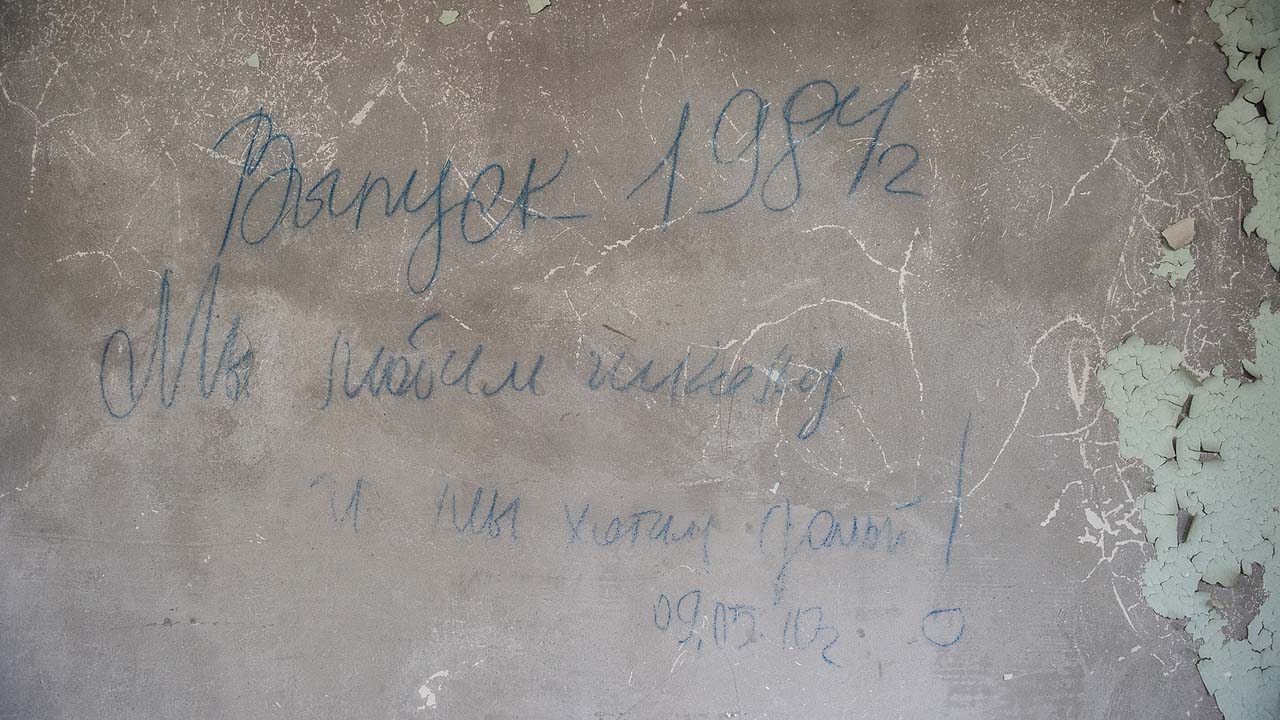 Выпуск 1984г
Мы любим школу
и мы хотим домой!
09.05.03г.